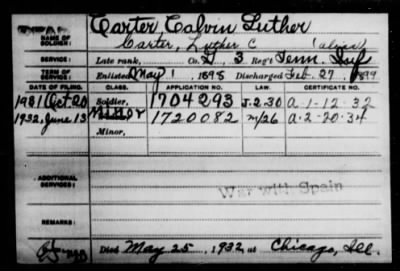 Carter Calvin Luther
NAME OF SOLDIER: Carter, Luther C (alias)
SERVICE: Late rank, Co. D 3 Reg't Tenn. Inf
TERM OF SERVICE: Enlisted May 1 1898 Discharged Feb. 27, 1899
DATE OF FILING. CLASS. APPLICATION NO. LAW. CERTIFICATE NO.
1931 Oct 20 Soldier, 1704293 J-2-30 A-1-12-32
1932, June 13 Minor 1720082 m/26 A-2-20-34
Minor,
ADDITIONAL SERVICES:
War with Spain
REMARKS:
Died May 25, 1932, at Chicago, Ill.